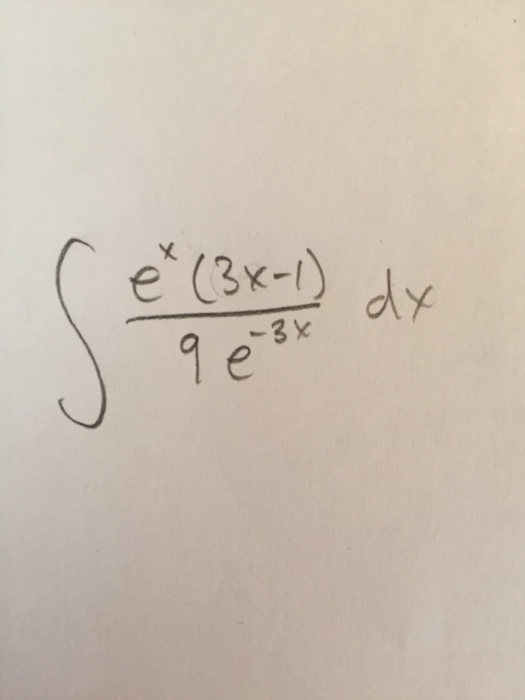 ∫ e^x (3x-1) / 9 e^-3x dx